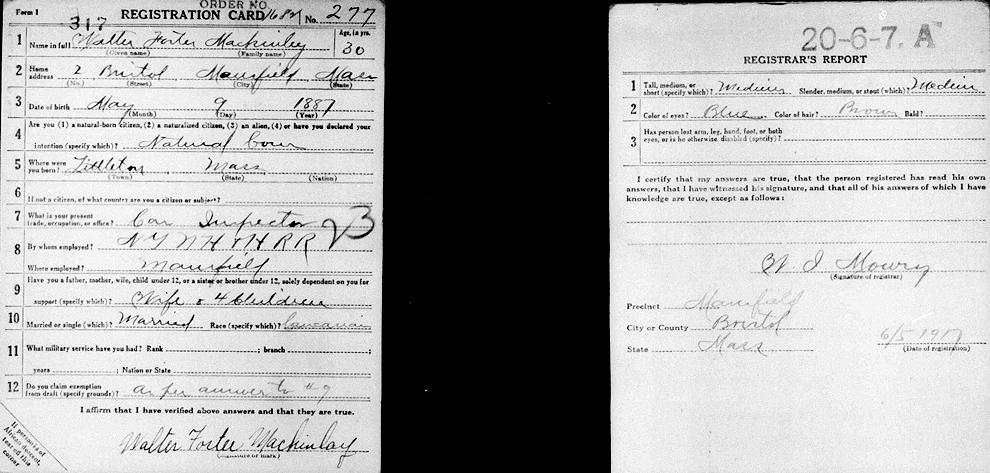 Form 1
ORDER NO.
317 REGISTRATION CARD 1682 No. 277
1 Name in full Walter Foster Mackinley Age, in yrs. 30
(Given name) (Family name)
2 Home address 2 Bristol Mansfield Mass
(No.) (Street) (City) (State)
3 Date of birth May 9 1887
(Month) (Day) (Year)
4 Are you (1) a natural-born citizen, (2) a naturalized citizen, (3) an alien, (4) or have you declared your
intention (specify which)? Natural Born
5 Where were you born? Littleton Mass
(Town) (State) (Nation)
6 If not a citizen, of what country are you a citizen or subject?
7 What is your present trade, occupation, or office? Car Inspector 23
8 By whom employed? N Y N H & H R R
Where employed? Mansfield
9 Have you a father, mother, wife, child under 12, or a sister or brother under 12, solely dependent on you for
support (specify which)? Wife & 4 Children
10 Married or single (which)? Married Race (specify which)? Caucasian
11 What military service have you had? Rank ; branch ;
years ; Nation or State
12 Do you claim exemption from draft (specify grounds)? as per answer to #9
I affirm that I have verified above answers and that they are true.
Walter Foster Mackinlay
(Signature or mark)
If person is of African descent, tear off this corner
20-6-7. A
REGISTRAR'S REPORT
1 Tall, medium, or short (specify which)? Medium Slender, medium, or stout (which)? Medium
2 Color of eyes? Blue Color of hair? Brown Bald?
3 Has person lost arm, leg, hand, foot, or both
eyes, or is he otherwise disabled (specify)?
I certify that my answers are true, that the person registered has read his own
answers, that I have witnessed his signature, and that all of his answers of which I have
knowledge are true, except as follows:
W J Mowry
(Signature of registrar)
Precinct Mansfield
City or County Bristol
State Mass
6/5 1917
(Date of registration)